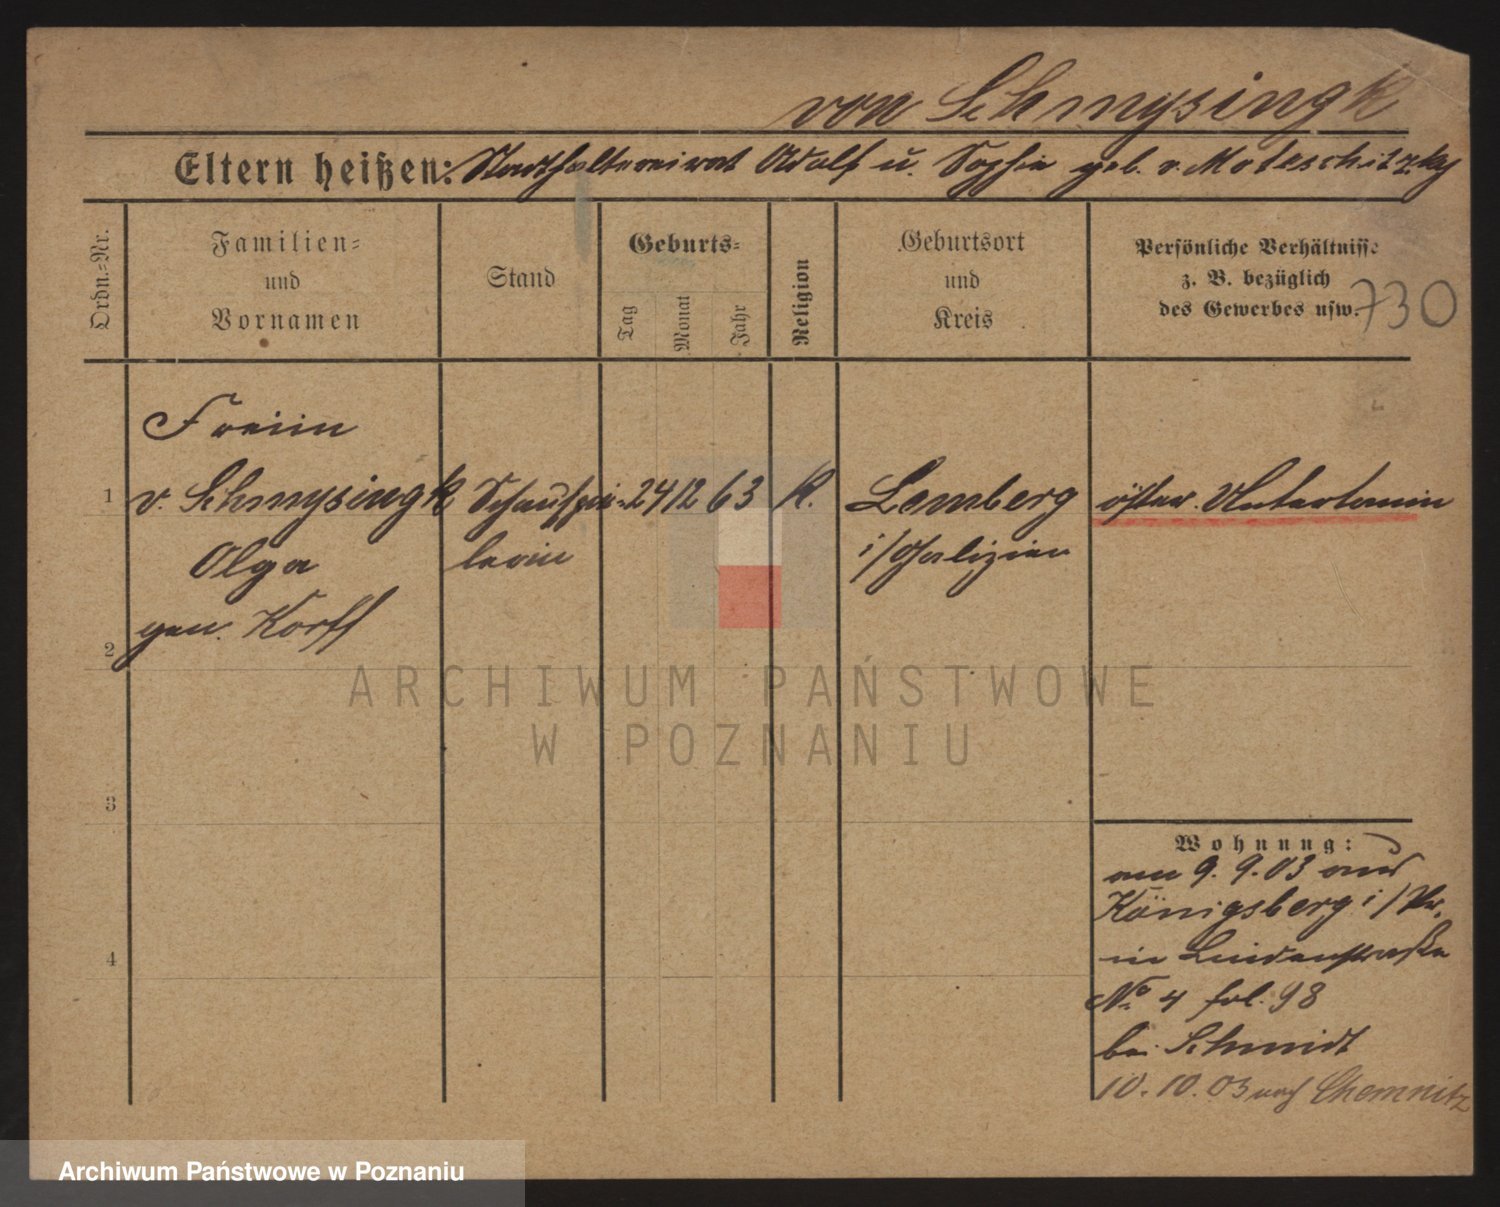 von Schmysingk
Eltern heißen: Statthaltereirat Adolf u. Sophie geb. v. Moteschitzky
Ordn.-Nr.
Familien-
und
Vornamen
Stand
Geburts-
Tag
Monat
Jahr
Religion
Geburtsort
und
Kreis
Persönliche Verhältnisse
z. B. bezüglich
des Gewerbes usw.
730
Freiin
1 v. Schmysingk Schauspie- 24 12 63 K. Lemberg öster. Untertanin
Olga lerin i/Galizien
gen. Korff
2
ARCHIWUM PAŃSTWOWE
W POZNANIU
3
4
Wohnung:
am 9. 9. 03 aus
Königsberg i/Pr.
in Lindenstraße
No. 4 fol. 98
bei Schmidt
10. 10. 03 nach Chemnitz
Archiwum Państwowe w Poznaniu